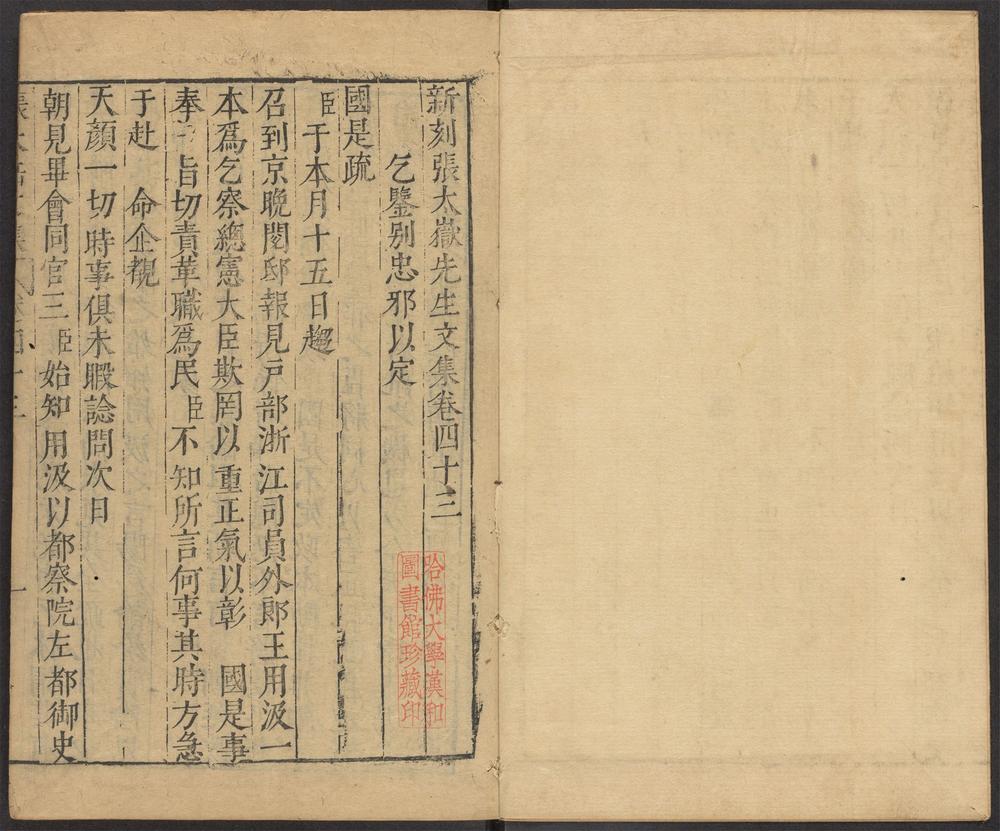 新刻張太嶽先生文集卷四十三
乞鑒別忠邪以定
國是疏
臣于本月十五日趨
召到京晚閱邸報見戶部浙江司員外郎王用汲一
本爲乞察總憲大臣欺罔以重正氣以彰 國是事
奉 旨切責革職爲民臣不知所言何事其時方急
于赴 命企覩
天顏一切時事俱未暇諗問次日
朝見畢會同官三臣始知用汲以都察院左都御史
哈佛大學漢和
圖書館珍藏印